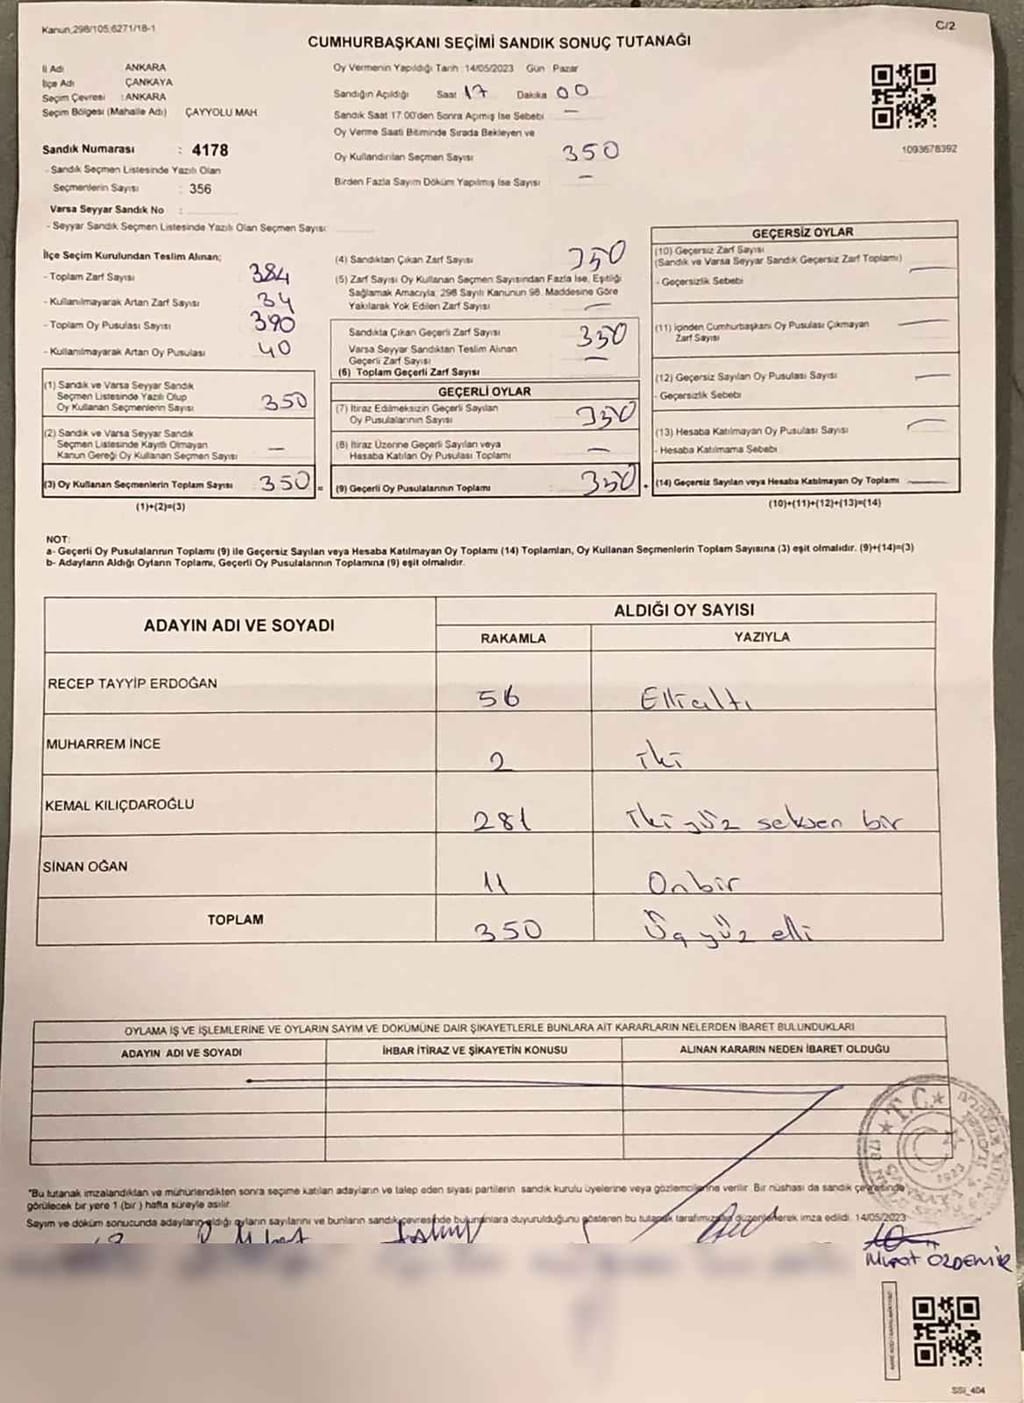 Kanun,298/105,6271/18-1
C/2
CUMHURBAŞKANI SEÇİMİ SANDIK SONUÇ TUTANAĞI
İl Adı ANKARA
İlçe Adı ÇANKAYA
Seçim Çevresi : ANKARA
Seçim Bölgesi (Mahalle Adı) ÇAYYOLU MAH
Sandık Numarası : 4178
- Sandık Seçmen Listesinde Yazılı Olan
Seçmenlerin Sayısı : 356
Varsa Seyyar Sandık No :
- Seyyar Sandık Seçmen Listesinde Yazılı Olan Seçmen Sayısı:
Oy Vermenin Yapıldığı Tarih :14/05/2023 Gün : Pazar
Sandığın Açıldığı Saat 17 Dakika 00
Sandık Saat 17.00'den Sonra Açımış İse Sebebi —
Oy Verme Saati Bitiminde Sırada Bekleyen ve
Oy Kullandırılan Seçmen Sayısı 350
Birden Fazla Sayım Döküm Yapılmış İse Sayısı —
1093678392
İlçe Seçim Kurulundan Teslim Alınan;
- Toplam Zarf Sayısı 384
- Kullanılmayarak Artan Zarf Sayısı 34
- Toplam Oy Pusulası Sayısı 390
- Kullanılmayarak Artan Oy Pusulası 40
(1) Sandık ve Varsa Seyyar Sandık
Seçmen Listesinde Yazılı Olup
Oy Kullanan Seçmenlerin Sayısı 350
(2) Sandık ve Varsa Seyyar Sandık
Seçmen Listesinde Kayıtlı Olmayan
Kanun Gereği Oy Kullanan Seçmen Sayısı —
(3) Oy Kullanan Seçmenlerin Toplam Sayısı 350 =
(1)+(2)=(3)
(4) Sandıktan Çıkan Zarf Sayısı 350
(5) Zarf Sayısı Oy Kullanan Seçmen Sayısından Fazla İse, Eşitliği
Sağlamak Amacıyla, 298 Sayılı Kanunun 98. Maddesine Göre
Yakılarak Yok Edilen Zarf Sayısı —
Sandıkta Çıkan Geçerli Zarf Sayısı 350
Varsa Seyyar Sandıktan Teslim Alınan
Geçerli Zarf Sayısı —
(6) Toplam Geçerli Zarf Sayısı
GEÇERLİ OYLAR
(7) İtiraz Edilmeksizin Geçerli Sayılan
Oy Pusulalarının Sayısı 350
(8) İtiraz Üzerine Geçerli Sayılan veya
Hesaba Katılan Oy Pusulası Toplamı —
(9) Geçerli Oy Pusulalarının Toplamı 350 +
GEÇERSİZ OYLAR
(10) Geçersiz Zarf Sayısı
(Sandık ve Varsa Seyyar Sandık Geçersiz Zarf Toplamı) —
- Geçersizlik Sebebi
(11) İçinden Cumhurbaşkanı Oy Pusulası Çıkmayan —
Zarf Sayısı
(12) Geçersiz Sayılan Oy Pusulası Sayısı —
- Geçersizlik Sebebi
(13) Hesaba Katılmayan Oy Pusulası Sayısı —
- Hesaba Katılmama Sebebi
(14) Geçersiz Sayılan veya Hesaba Katılmayan Oy Toplamı —
(10)+(11)+(12)+(13)=(14)
NOT:
a- Geçerli Oy Pusulalarının Toplamı (9) ile Geçersiz Sayılan veya Hesaba Katılmayan Oy Toplamı (14) Toplamları, Oy Kullanan Seçmenlerin Toplam Sayısına (3) eşit olmalıdır. (9)+(14)=(3)
b- Adayların Aldığı Oyların Toplamı, Geçerli Oy Pusulalarının Toplamına (9) eşit olmalıdır.
ADAYIN ADI VE SOYADI
ALDIĞI OY SAYISI
RAKAMLA YAZIYLA
RECEP TAYYİP ERDOĞAN 56 Elli altı
MUHARREM İNCE 2 iki
KEMAL KILIÇDAROĞLU 281 İki yüz seksen bir
SİNAN OĞAN 11 Onbir
TOPLAM 350 Üç yüz elli
OYLAMA İŞ VE İŞLEMLERİNE VE OYLARIN SAYIM VE DÖKÜMÜNE DAİR ŞİKAYETLERLE BUNLARA AİT KARARLARIN NELERDEN İBARET BULUNDUKLARI
ADAYIN ADI VE SOYADI İHBAR İTİRAZ VE ŞİKAYETİN KONUSU ALINAN KARARIN NEDEN İBARET OLDUĞU
T.C.
"Bu tutanak imzalandıktan ve mühürlendikten sonra seçime katılan adayların ve talep eden siyasi partilerin sandık kurulu üyelerine veya gözlemcilerine verilir. Bir nüshası da sandık çevresinde
görülecek bir yere 1 (bir ) hafta süreyle asılır.
Sayım ve döküm sonucunda adayların aldığı oyların sayılarını ve bunların sandık çevresinde bulunanlara duyurulduğunu gösteren bu tutanak tarafımızdan düzenlenerek imza edildi. 14/05/2023
Murat ÖZDEMİR
SSI_404